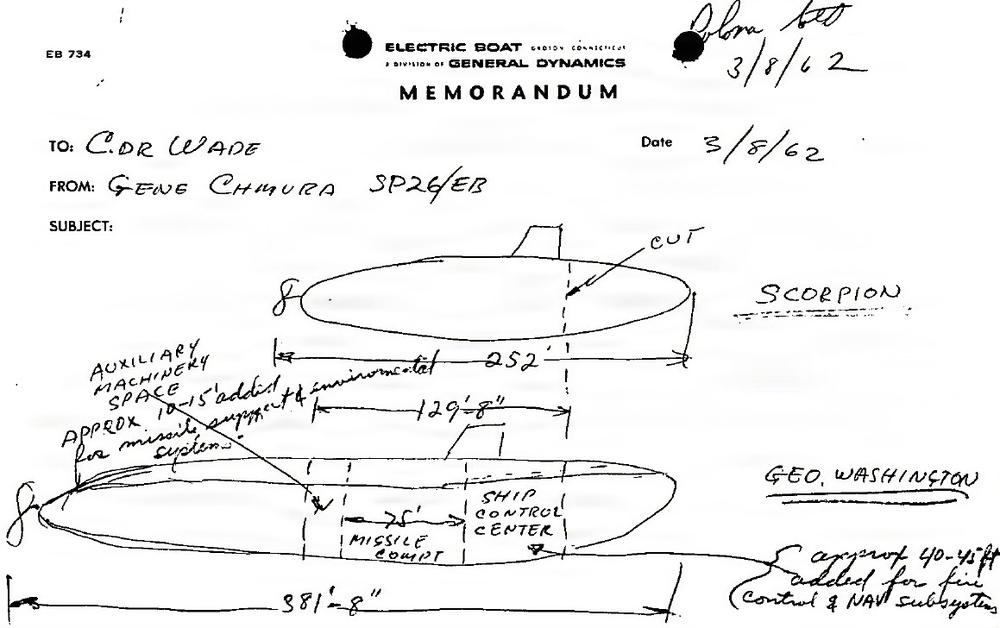 3/8/62
EB 734
ELECTRIC BOAT GROTON CONNECTICUT
A DIVISION OF GENERAL DYNAMICS
MEMORANDUM
TO: C.DR WADE
Date 3/8/62
FROM: GENE CHMURA SP26/EB
SUBJECT:
CUT
SCORPION
252'
AUXILIARY
MACHINERY
SPACE
APPROX 10-15' added
for missile support & enviromental
systems.
129'-8"
GEO. WASHINGTON
SHIP
CONTROL
CENTER
75'
MISSILE
COMPT
approx 40-45 ft
added for fire
control & NAV subsystems
381'-8"